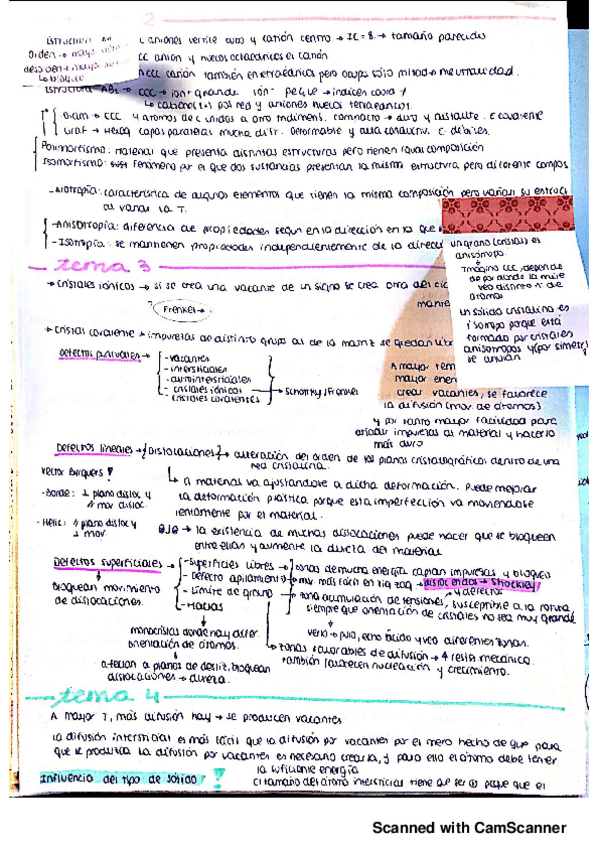 2
aniones vertice cubo y catión centro → IC = 8. → tamaño parecido
Orden → mayor
CC anión y huecos octaedricos el catión
desorden → mayor
CCC catión también en tetraédrica pero ocupa solo mitad → neutralidad.
Estructura AB2 → CCC → ion+ grande ion- peque → indices coord ≠
↳ cationes (+) por red y aniones huecos tetraédricos.
Diam → CCC 4 átomos de C unidos a otro tridimens. compacto → duro y aislante. e covalente
Graf → Hexag capas paralelas mucha difr. deformable y alta conductiv. e. débiles.
Polimorfismo: material que presenta distintas estructuras pero tienen igual composición
Isomorfismo: fenómeno por el que dos sustancias presentan la misma estructura pero diferente compos
- Alotropía: característica de algunos elementos que tienen la misma composición pero varían su estruct
al variar la T.
- Anisotropía: diferencia de propiedades según en la dirección en la que
- Isotropía: se mantienen propiedades independientemente de la direcci
un grano (cristal) es
anisótropo.
Imagina CCC, depende
de por donde la mire
veo distinto nº de
átomos
un sólido cristalino es
isótropo porque está
formado por cristales
anisótropos y (por simetr
se anulan
tema 3
→ cristales iónicos → si se crea una vacante de un signo se crea otra del
mante
Frenkel →
→ cristal covalente → impurezas de distinto grupo al de la matriz se quedan
Defectos puntuales →
- vacantes
- intersticiales
- autointersticiales
- cristales iónicos
cristales covalentes
→ Schottky / Frenkel
A mayor tem
mayor ener
crear vacantes, se favorece
la difusión (mov. de átomos)
y por tanto mayor facilidad para
añadir impurezas al material y hacerlo
más duro
Defectos lineales → {Dislocaciones} → alteración del orden de los planos cristalográficos dentro de una
red cristalina.
Vector Burguers !
↳ a material va ajustandose a dicha deformación. Puede mejorar
la deformación plástica porque esta imperfección va moviendose
lentamente por el material.
- Borde: ⊥ plano disloc y
∥ mov disloc.
- Helic: ∥ plano disloc y
⊥ mov.
OJO → la existencia de muchas dislocaciones puede hacer que se bloqueen
entre ellas y aumente la dureza del material
Defectos superficiales →
bloquean movimiento
de dislocaciones.
- Superficies libres → zonas de mucha energía captan impurezas y bloqueo
- Defecto apilamiento → mov más fácil en zig zag → disloc en dos → Shockley
y defecto
- Límite de grano → zona acumulación de tensiones, susceptible a la rotura
siempre que orientación de cristales no sea muy grande
- Maclas
verlo → pulo, echo ácido y veo diferentes zonas.
monocristales donde hay difer.
orientación de átomos.
→ zonas favorables de difusión → resist mecánica.
también favorecen nucleación y crecimiento.
afectan a planos de desliz, bloquean
dislocaciones → dureza.
tema 4
A mayor T, más difusión hay → se producen vacantes
la difusión intersticial es más fácil que la difusión por vacantes por el mero hecho de que para
que se produzca la difusión por vacantes es necesario crearla, y para ello el átomo debe tener
la suficiente energía
Influencia del tipo de sólido !
el tamaño del átomo intersticial tiene que ser + peque que el
Scanned with CamScanner